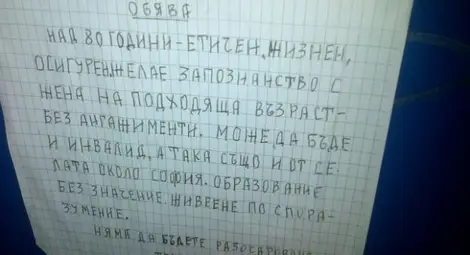 ОБЯВА
НАД 80 ГОДИНИ - ЕТИЧЕН, ЖИЗНЕН,
ОСИГУРЕН ЖЕЛАЕ ЗАПОЗНАНСТВО С
ЖЕНА НА ПОДХОДЯЩА ВЪЗРАСТ-
БЕЗ АНГАЖИМЕНТИ. МОЖЕ ДА БЪДЕ
И ИНВАЛИД, А ТАКА СЪЩО И ОТ СЕ-
ЛАТА ОКОЛО СОФИЯ. ОБРАЗОВАНИЕ
БЕЗ ЗНАЧЕНИЕ. ЖИВЕЕНЕ ПО СПОРА-
ЗУМЕНИЕ.
НЯМА ДА БЪДЕТЕ РАЗОЧАРОВАНА